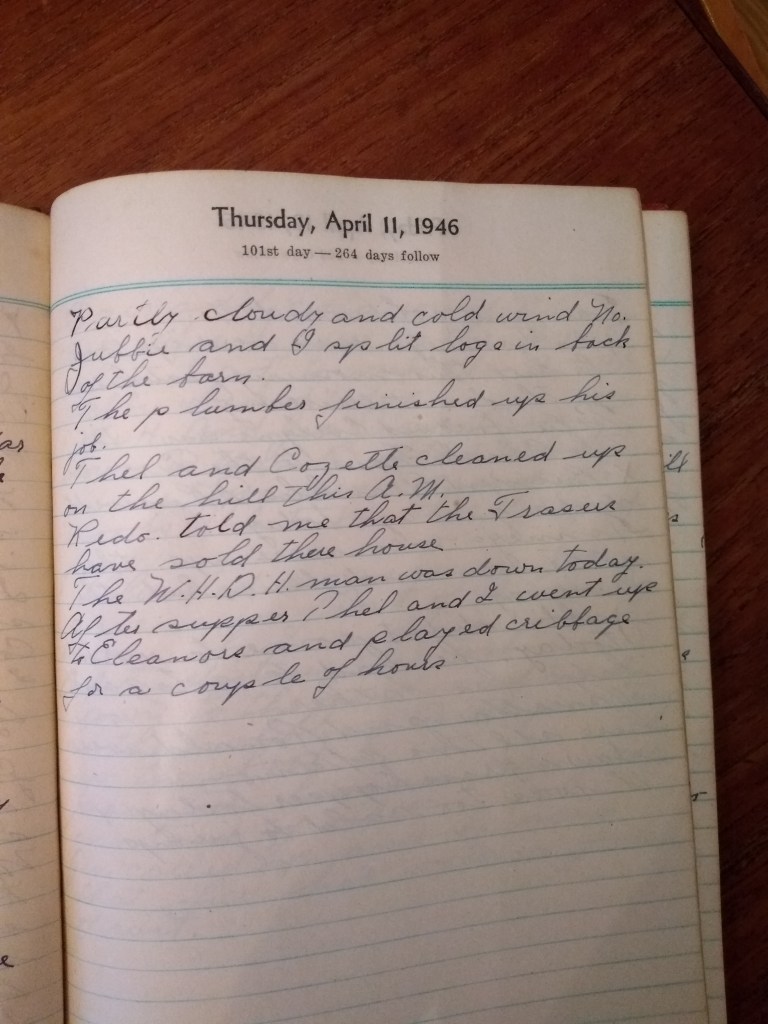 Thursday, April 11, 1946
101st day — 264 days follow
Partly cloudy and cold wind No.
Jubbie and I split logs in back
of the barn.
The plumber finished up his
job.
Thel and Cozette cleaned up
on the hill this A.M.
told me that the
have sold there house
The W.H.D.H. man was down today.
After supper Thel and I went up
to Eleanors and played cribbage
for a couple of hours